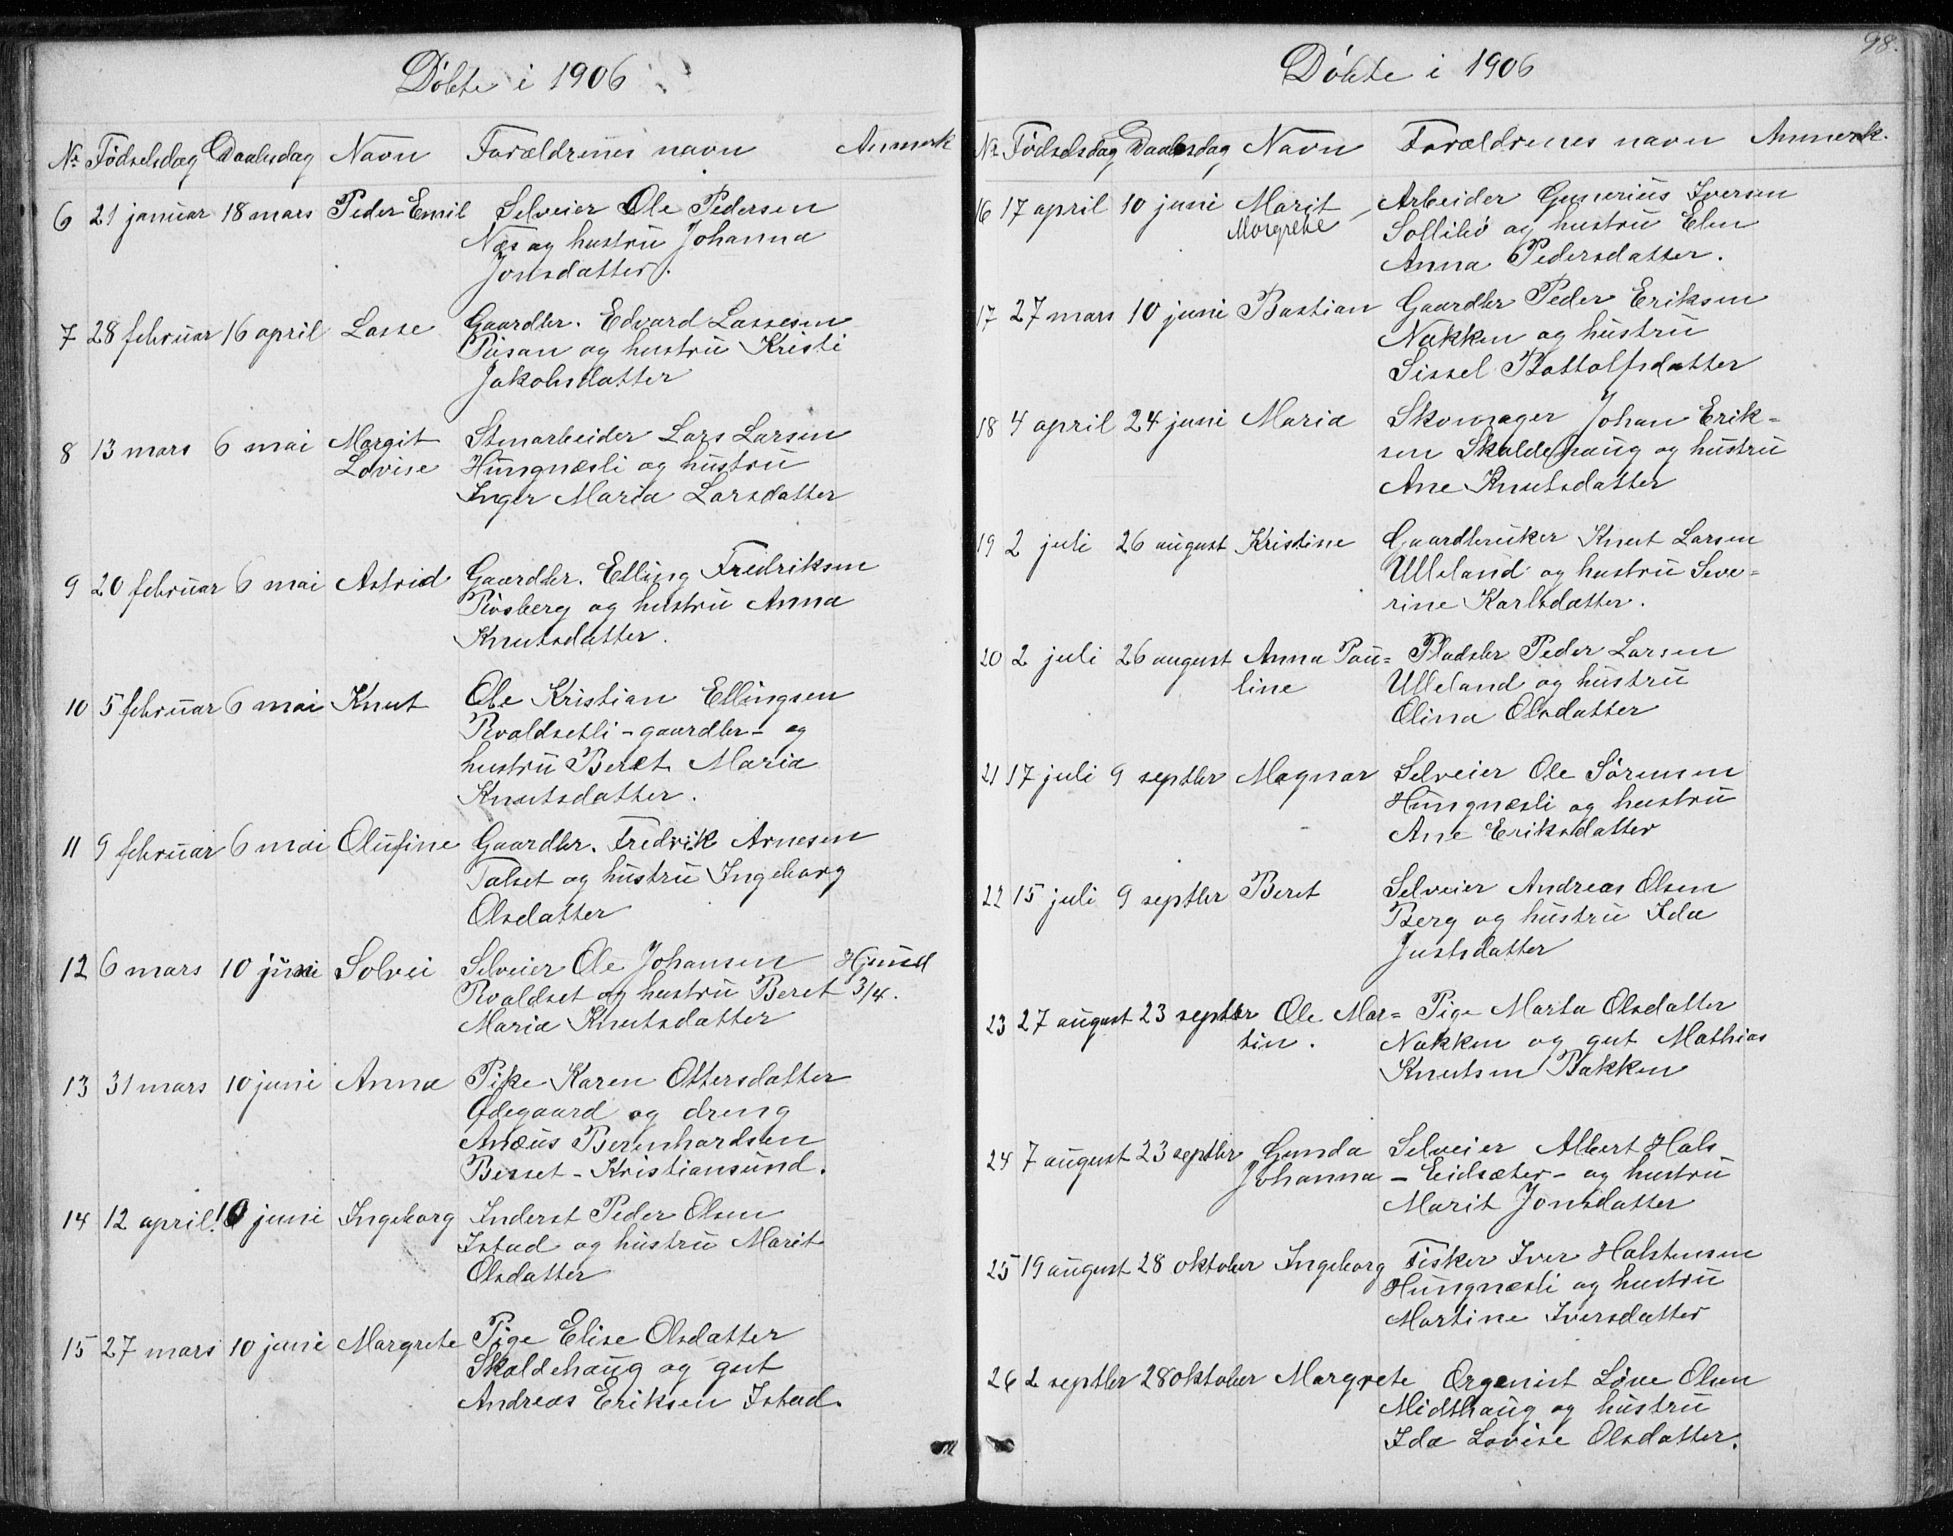 Døbte i 1906
Nr Fødselsdag Daabsdag Navn Forældrenes navn Anmerk
6 21 januar 18 mars Peder Emil Selveier Ole Pedersen
Næs og hustru Johanna
Jonsdatter.
7 28 februar 16 april Lasse Gaardbr. Edvard Lassesen
og hustru Kristi
Jakobsdatter
8 13 mars 6 mai Margit Stenarbeider Lars Larsen
Lovise Hungnæsli og hustru
Inger Maria Larsdatter
9 20 februar 6 mai Astrid Gaardbr. Elling Fredriksen
Røsberg og hustru Anna
Knutsdatter.
10 5 februar 6 mai Knut Ole Kristian Ellingsen
Roaldsetli - gaardbr - og
hustru Beret Maria
Knutsdatter.
11 9 februar 6 mai Olufine Gaardbr. Fredrik Arnesen
Talset og hustru Ingeborg
Olsdatter
12 6 mars 10 juni Solvei Selveier Ole Johansen Hjemd
Roaldset og hustru Beret 3/4.
Maria Knutsdatter
13 31 mars 10 juni Anna Pike Karen Ottersdatter
Ødegaard og dreng
Anæus Bernhardsen
Bisset - Kristiansund.
14 12 april 10 juni Ingeborg Inderst Peder Olsen
Istad og hustru Marit
Olsdatter
15 27 mars 10 juni Margrete Pige Elise Olsdatter
Skaldehaug og gut
Andreas Eriksen Istad.
98.
Døbte i 1906
Nr Fødselsdag Daabsdag Navn Forældrenes navn Anmerk.
16 17 april 10 juni Marit Arbeider Gunerius Iversen
Margrete Sollibø og hustru Elen
Anna Pedersdatter.
17 27 mars 10 juni Bastian Gaardbr Peder Eriksen
Nakken og hustru
Sissel Bottolfsdatter
18 4 april 24 juni Maria Skomager Johan Erik=
sen Skaldehaug og hustru
Ane Knutsdatter
19 2 juli 26 august Kristine Gaardbruker Knut Larsen
Ulleland og hustru Seve=
rine Karlsdatter.
20 2 juli 26 august Anna Pau= Pladsbr Peder Larsen
line Ulleland og hustru
Olina Olsdatter
21 17 juli 9 septbr Magnar Selveier Ole Sørensen
Hungnæsli og hustru
Ane Eriksdatter
22 15 juli 9 septbr Beret Selveier Andreas Olsen
Berg og hustru Ida
Justsdatter
23 27 august 23 septbr Ole Mar= Pige Marta Olsdatter
tin. Nakken og gut Mathias
Knutsen Bakken
24 7 august 23 septbr Gunda Selveier Albert Hals
Johanna - Eidsæter - og hustru
Marit Jonsdatter
25 19 august 28 oktober Ingeborg Fisker Iver Halstensen
Hungnæsli og hustru
Martine Iversdatter
26 2 septbr 28 oktober Margrete Organist Løve Olsen
Midthaug og hustru
Ida Lovise Olsdatter.